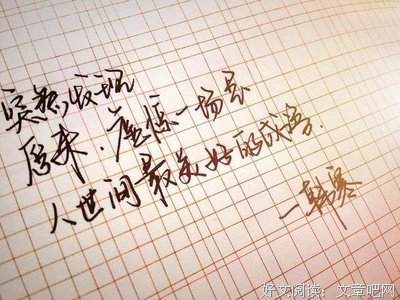 突然发现
原来，虚惊一场是
人世间最美好的成语.
—韩寒
好文阅读：文章吧网